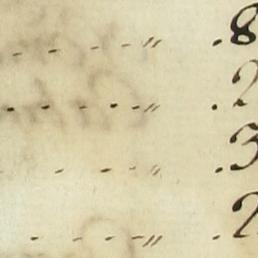 - - - - " . 8
- - - - - " . 2
- - - " . 3
- - - - " . 2